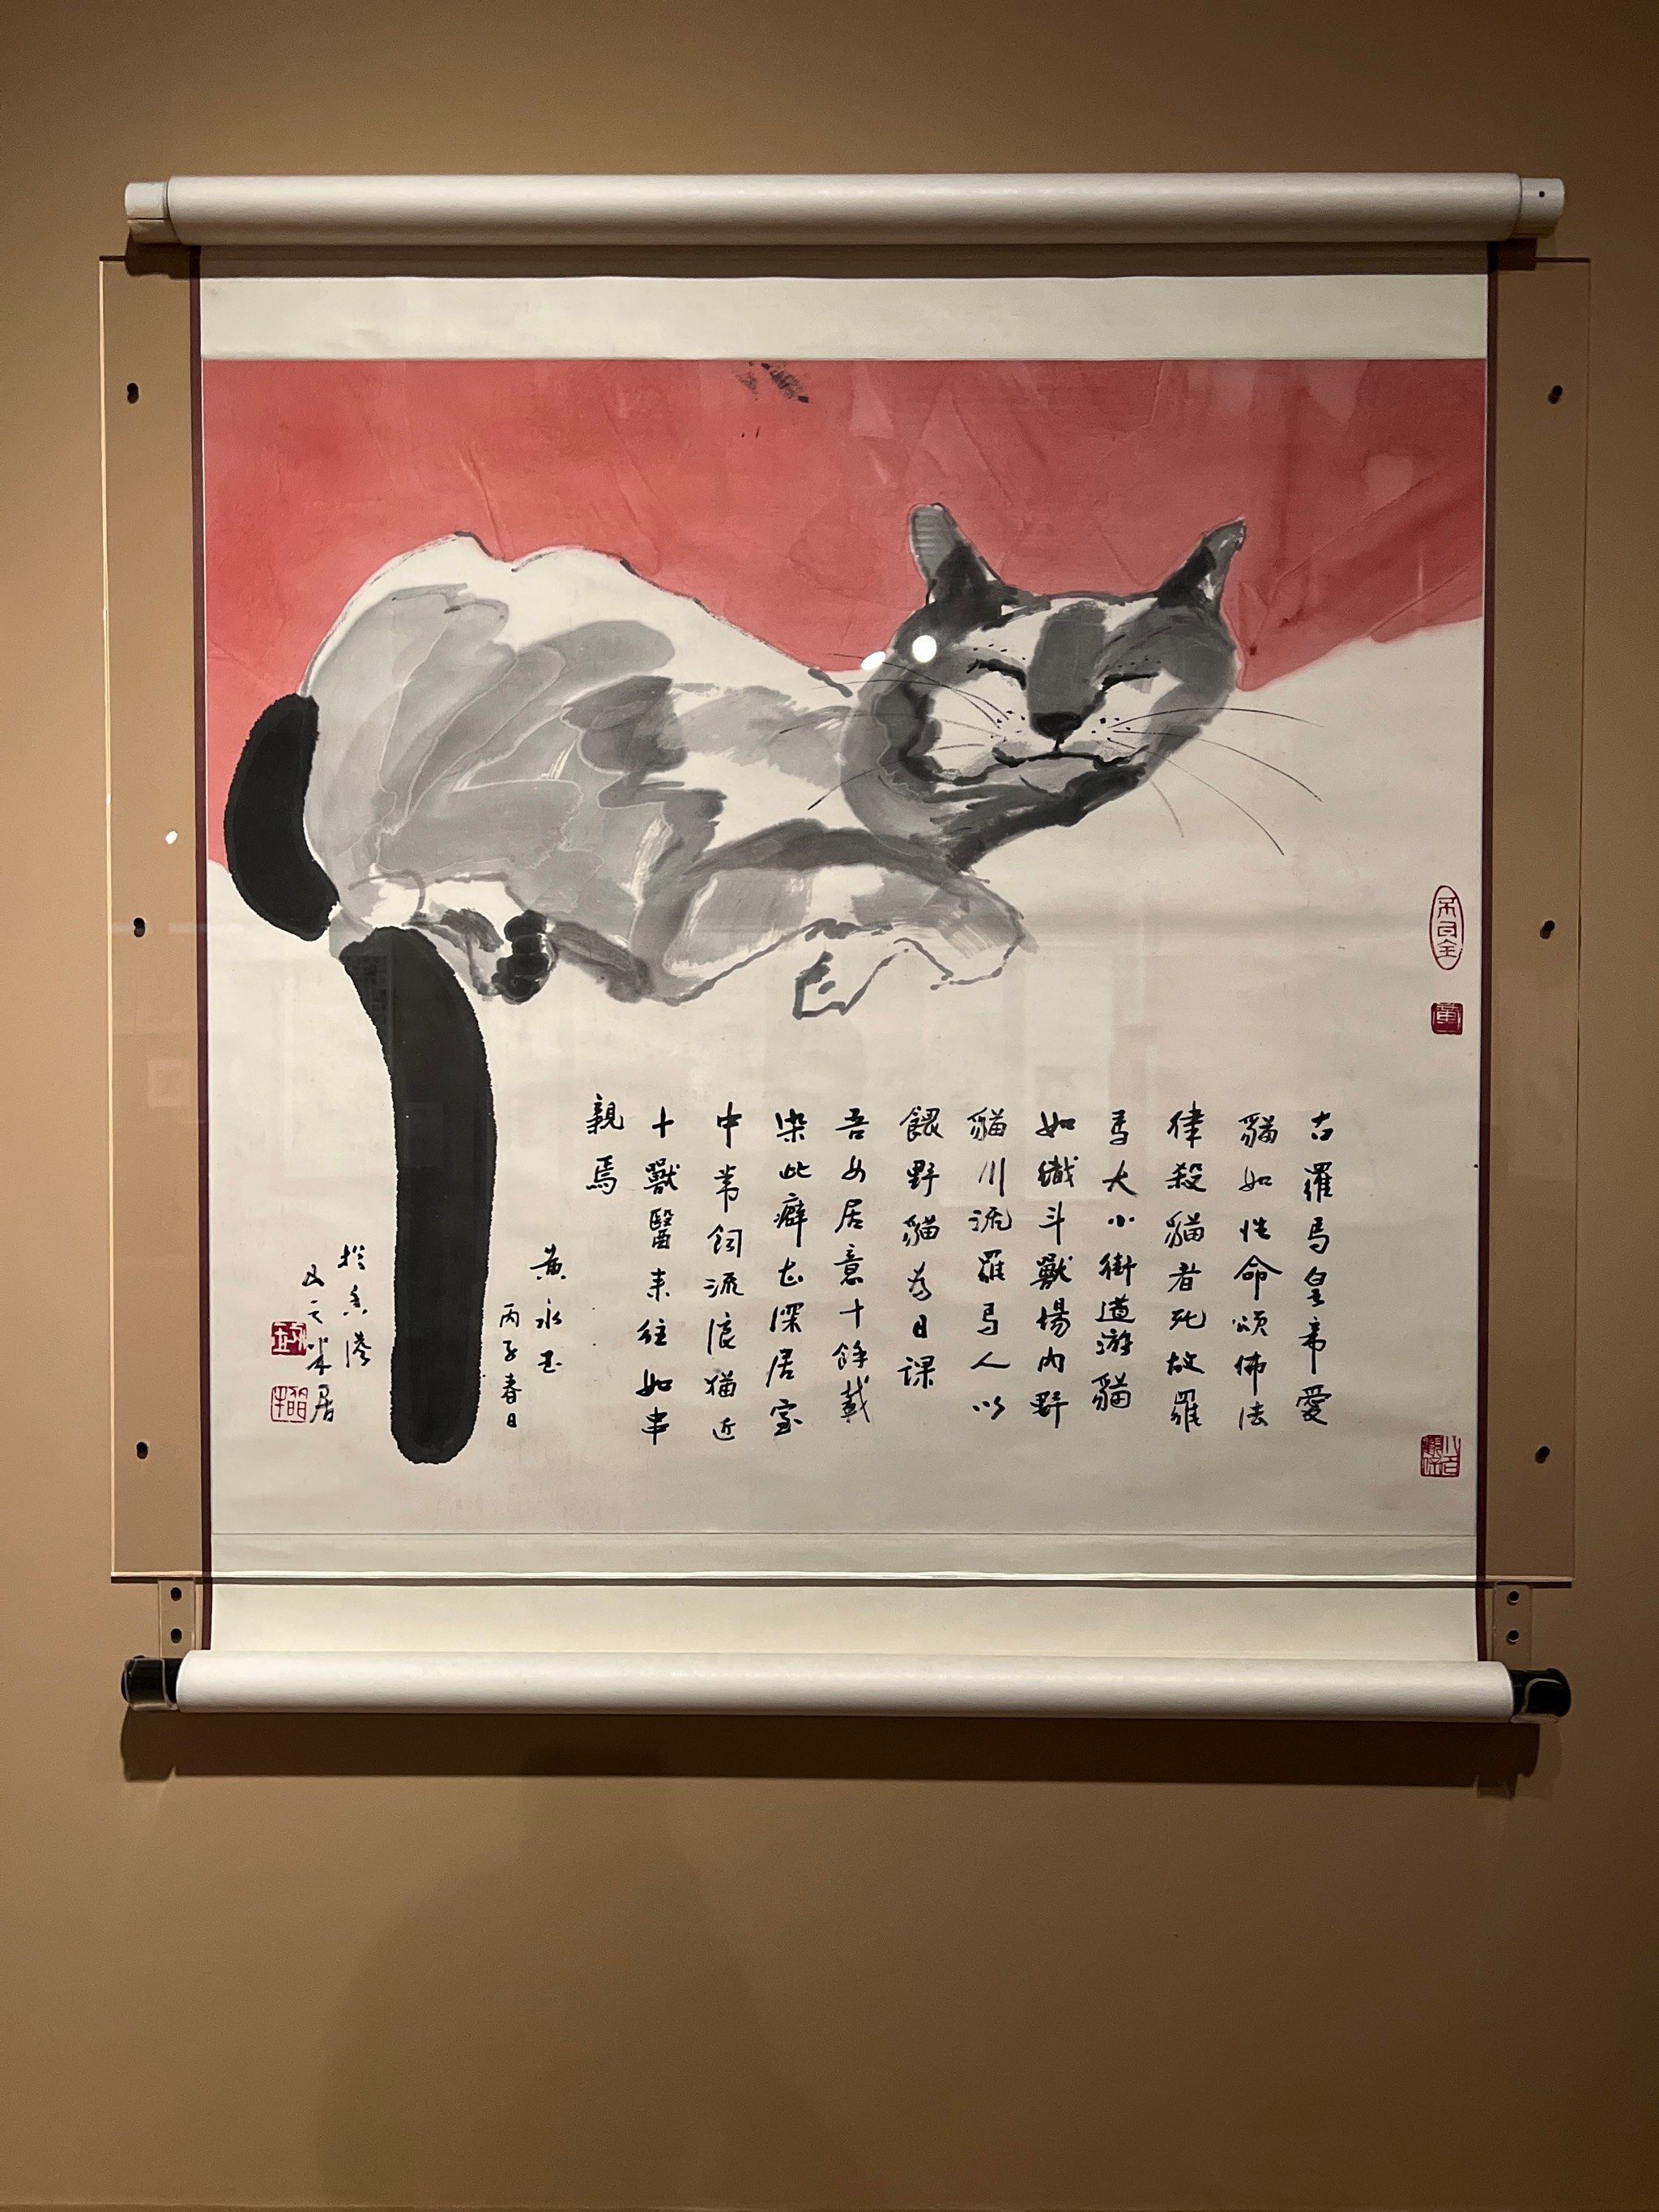 古羅馬皇帝愛
貓如性命頒佈法
律殺貓者死故羅
馬大小街道游貓
如織斗獸場内野
貓川流羅馬人以
餵野貓為日課
吾女居意十餘載
染此癖尤深居室
中常飼流浪猫近
十獸醫来往如串
親焉
黄永玉
丙子春日
於香港
山之半居
黄